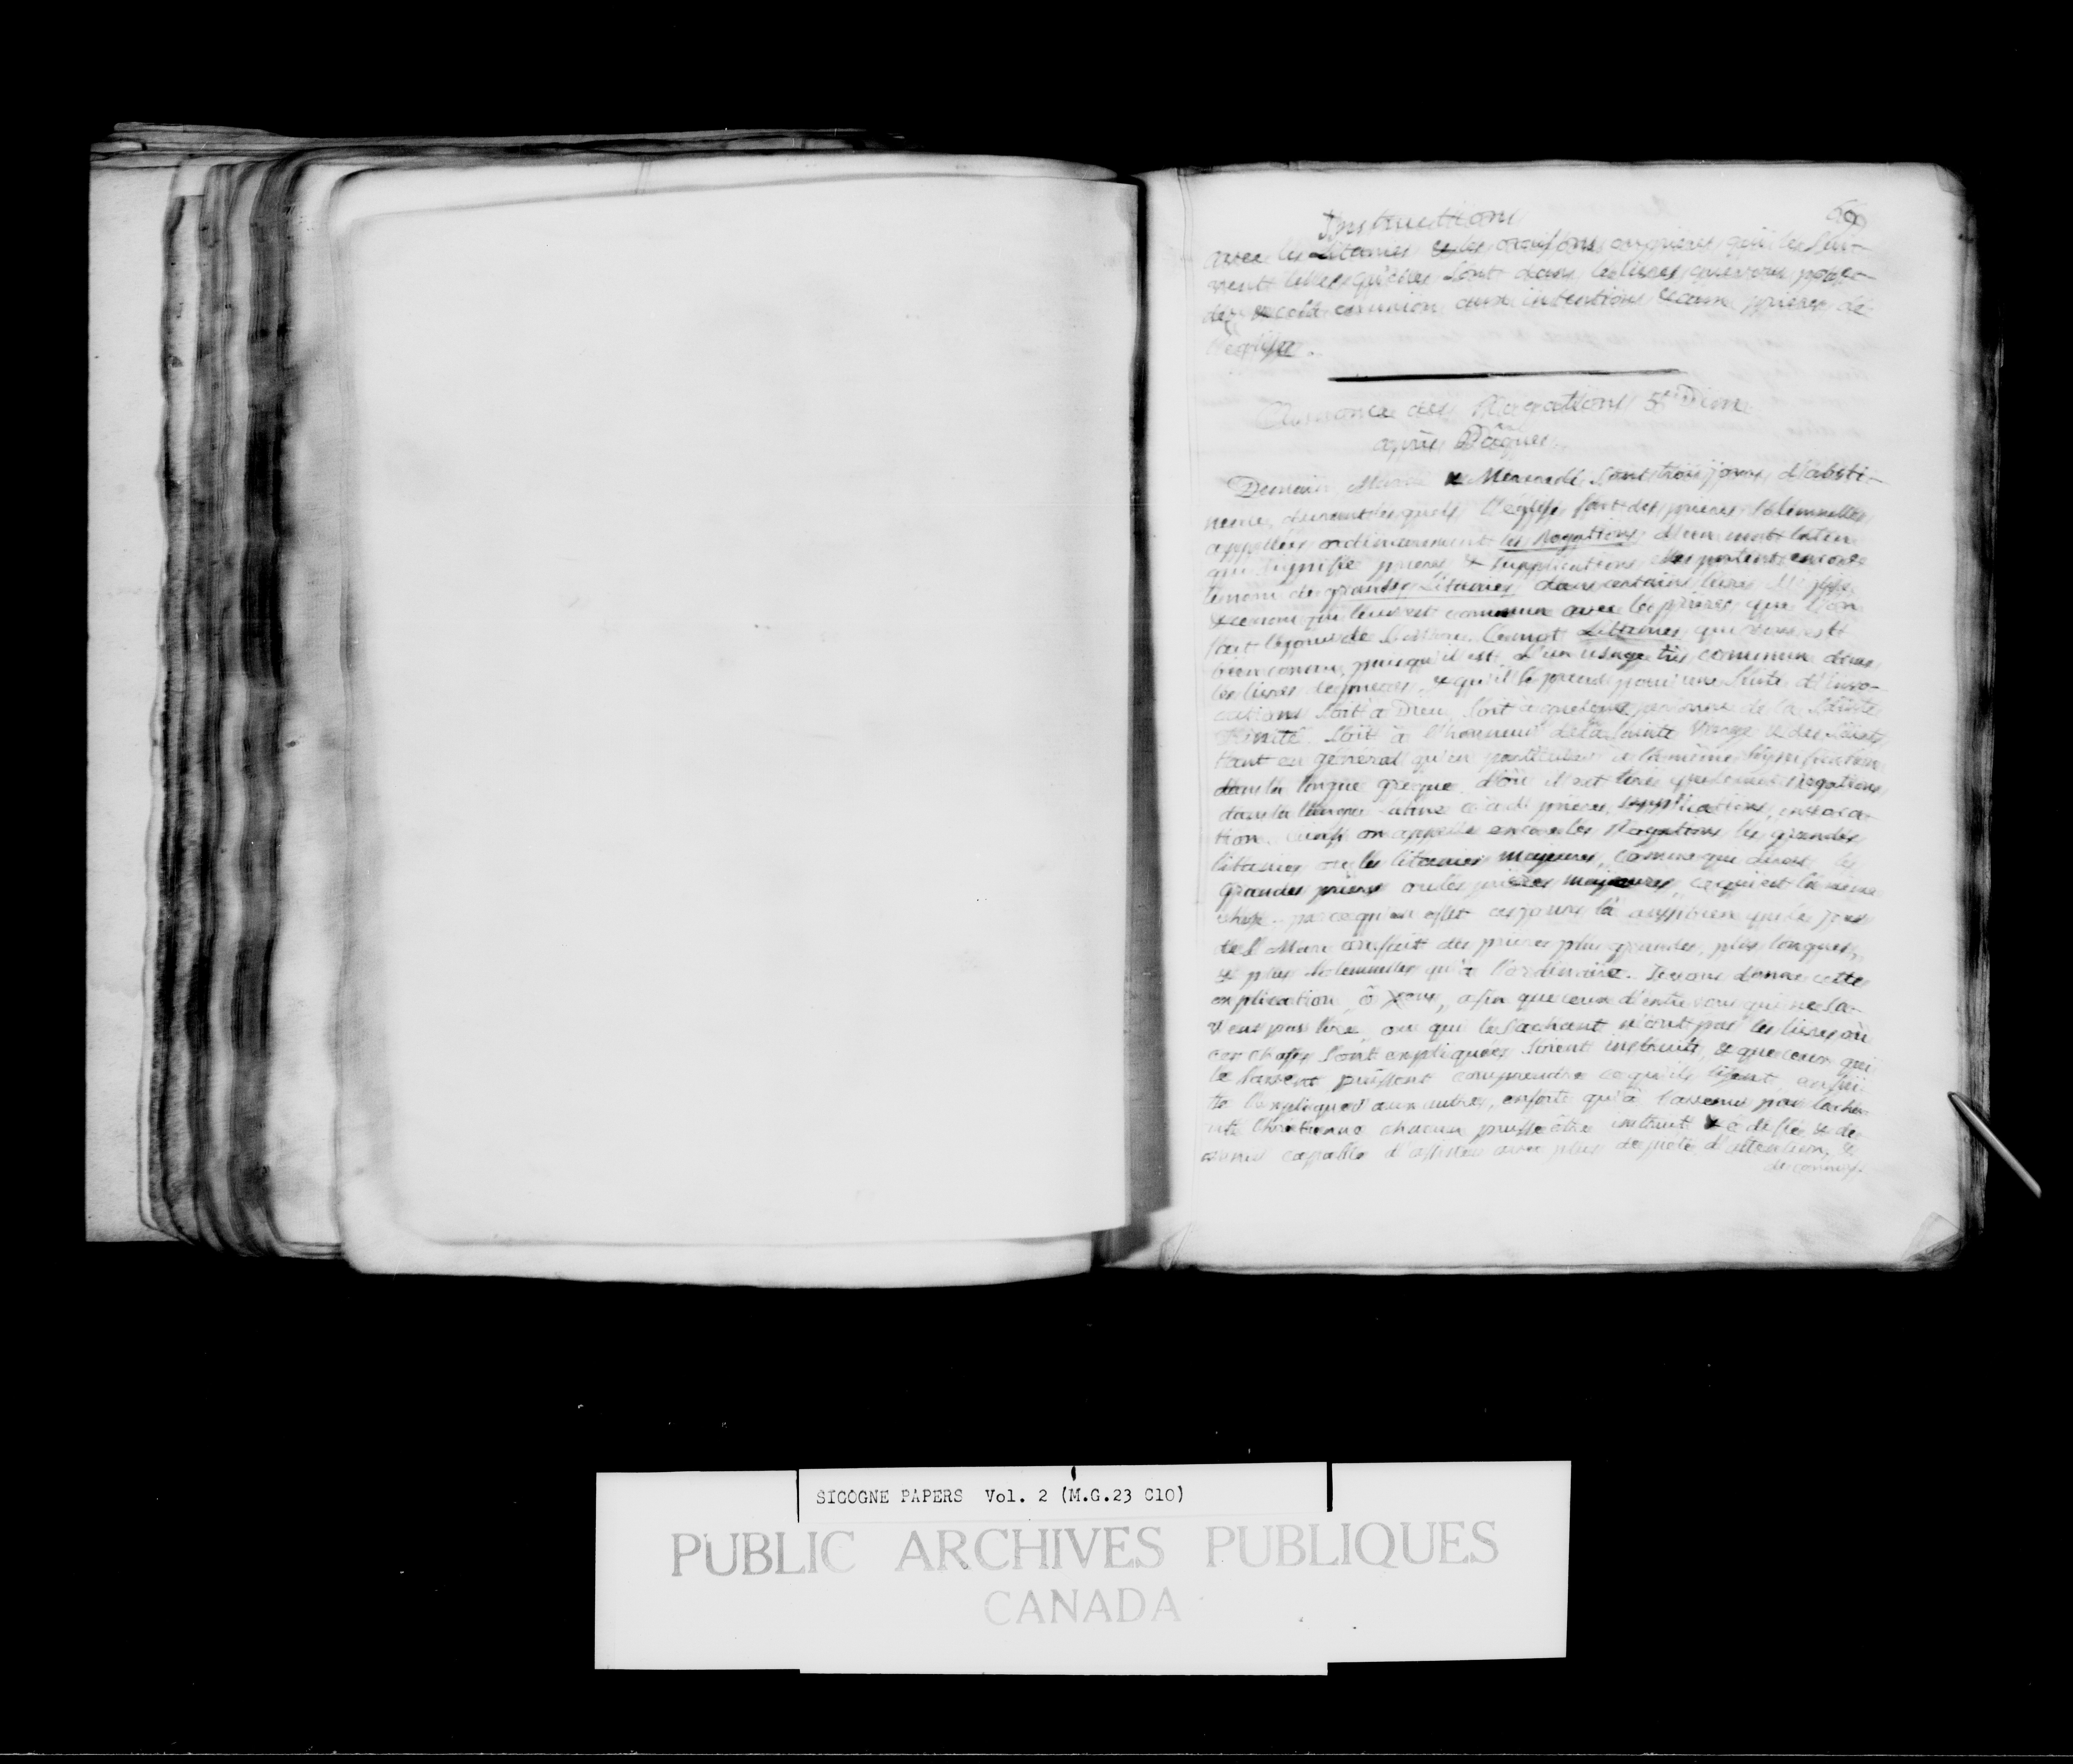 Instructions 69
avec les Litanies & les oraisons ou prieres qui les sui-
vent telles qu'elles sont dans les livres que vous posse-
dez & cela en union aux intentions & aux prieres de
l'eglise.
Annonce des Rogations 5e Dim.
après Pâques.
Demain, Mardi & Mercredi sont trois jours d'absti-
nence, durant lesquels l'église fait des prieres solemnelles
appellées ordinairement les Rogations, d'un mot latin
qui signifie prieres & supplications. Elles portent encore
le nom de grandes Litanies dans certains livres d'église,
& ce nom qui leur est commun avec les prieres que l'on
fait le jour de St Marc. Ce mot Litanies, qui vous est
bien connu, puisqu'il est d'un usage très commun dans
les livres de prieres, & qu'il se prend pour une suite d'invo-
cations soit à Dieu, soit à quelque personne de la Sainte
Trinité, soit à l'honneur de la Sainte Vierge & des Saints
tant en général qu'en particulier a la même signification
dans la langue greque d'où il est tiré, que Rogations
dans la langue latine c'à d. prieres, supplications, invoca-
tion. aussi on appelle encore les Rogations les grandes
litanies ou les litanies majeures, comme que diroit les
grandes prieres ou les prieres majeures, ce qui est la même
chose. parce qu'en effet ces jours là aussi bien que le jour
de St Marc on fait des prieres plus grandes, plus longues,
& plus solemnelles qu'à l'ordinaire. Je vous donne cette
explication, ô vous, afin que ceux d'entre vous qui ne sa-
vent pas lire, ou qui le sachant n'ont pas les livres où
ces choses sont expliquées soient instruits, & que ceux qui
le savent puissent comprendre ce qu'ils lisent, ensui-
te l'expliquer aux autres, ensorte qu'à l'avenir par la cha-
rité Chrétienne chacun puisse être instruit & edifié & de-
venir capable d'assister avec plus de pieté d'attention, &
de connois-
SICOGNE PAPERS Vol. 2 (M.G.23 C10)
PUBLIC ARCHIVES PUBLIQUES
CANADA